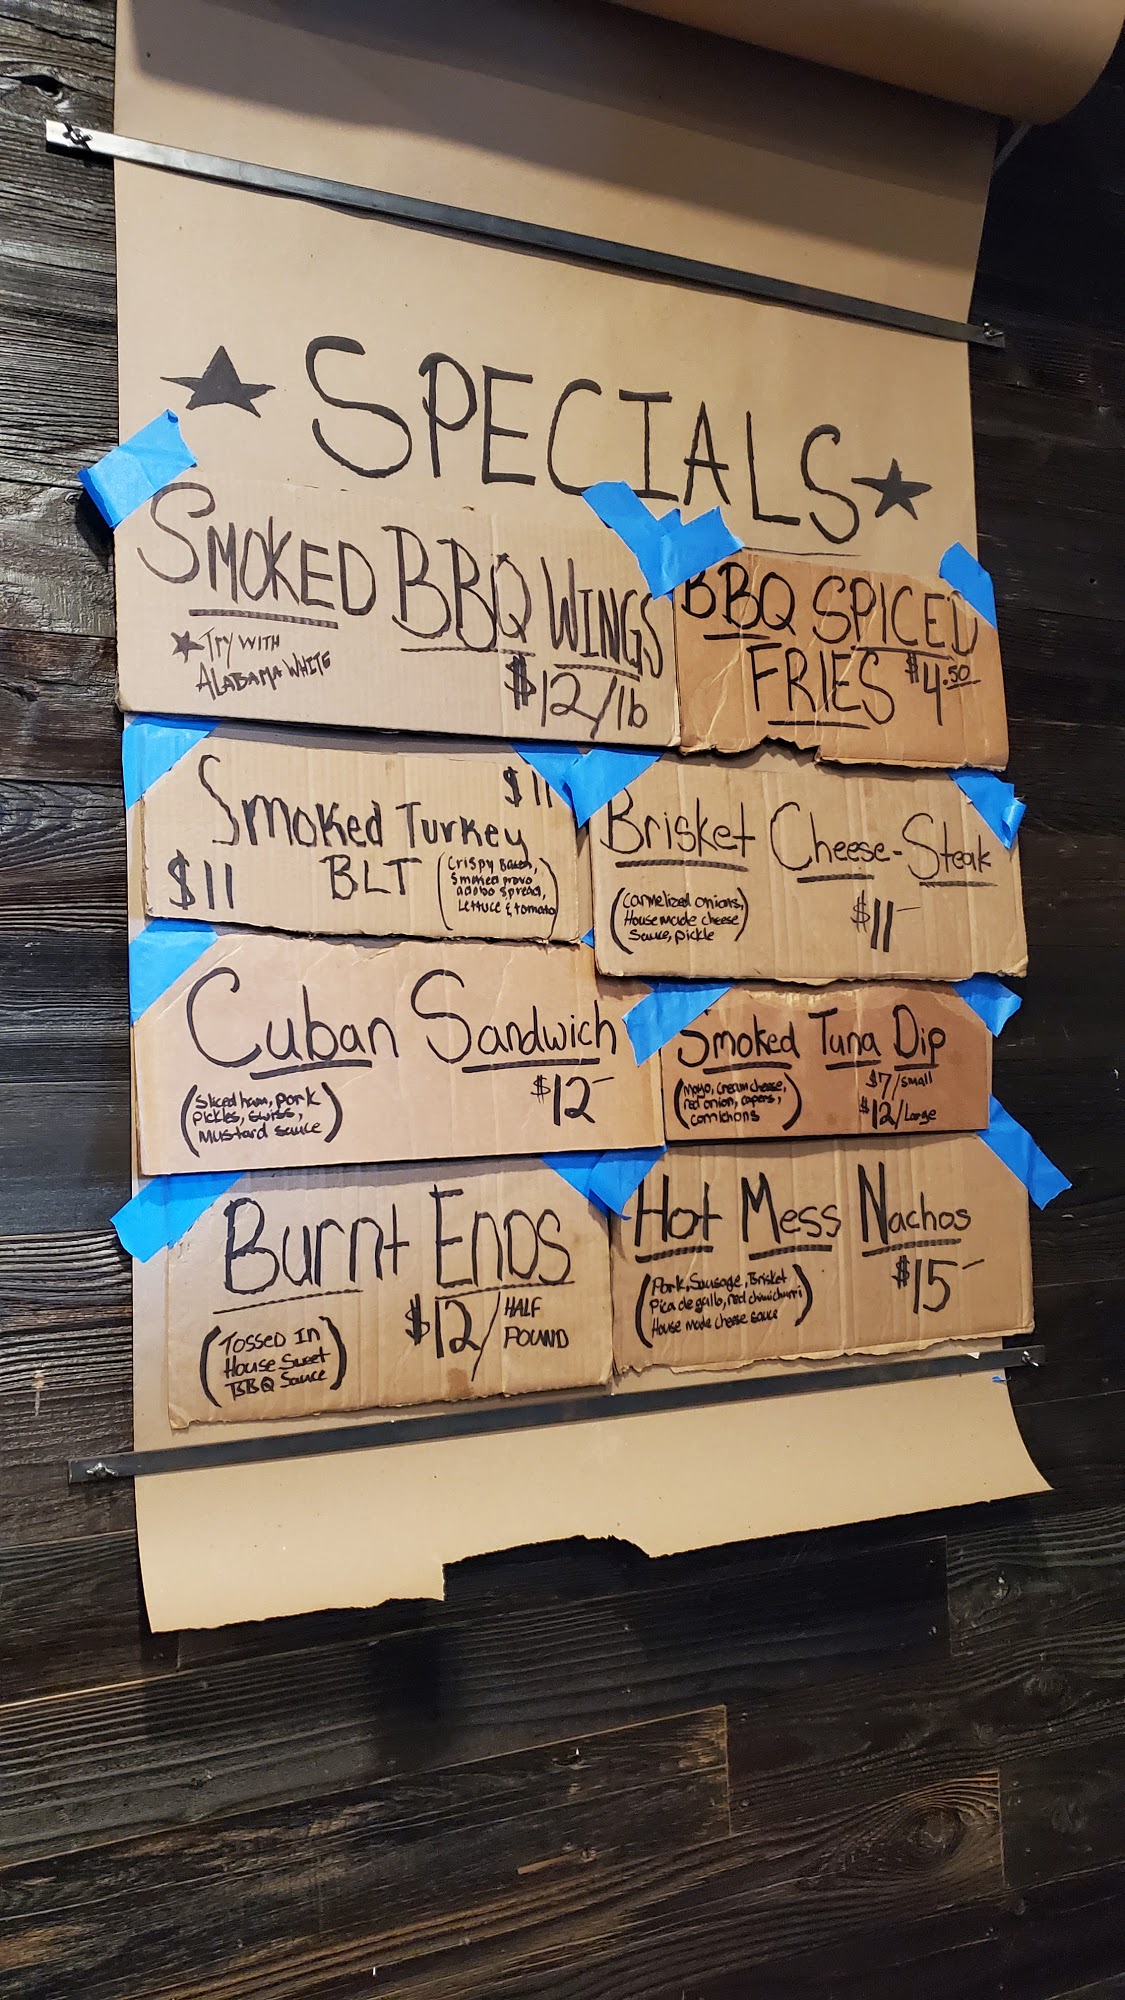 ★ SPECIALS ★
SMOKED BBQ WINGS
★ TRY WITH
ALABAMA WHITE
$12/lb
BBQ SPICED
FRIES $4.50
$11
Smoked Turkey
$11 BLT
(Crispy Bacon,
Smoked provo
adobo Spread,
Lettuce & tomato)
Brisket Cheese-Steak
(Carmelized onions,
House made cheese
Sauce, pickle)
$11-
Cuban Sandwich
(Sliced ham, pork
pickles, swiss,
mustard sauce)
$12-
Smoked Tuna Dip
(Mayo, cream cheese,
red onion, capers,
cornichons)
$7/small
$12/Large
Burnt Ends
$12/HALF
POUND
(TOSSED IN
House Sweet
BBQ Sauce)
Hot Mess Nachos
(Pork, Sausage, Brisket
pica de gallo, red chimichurri
House made cheese sauce)
$15-